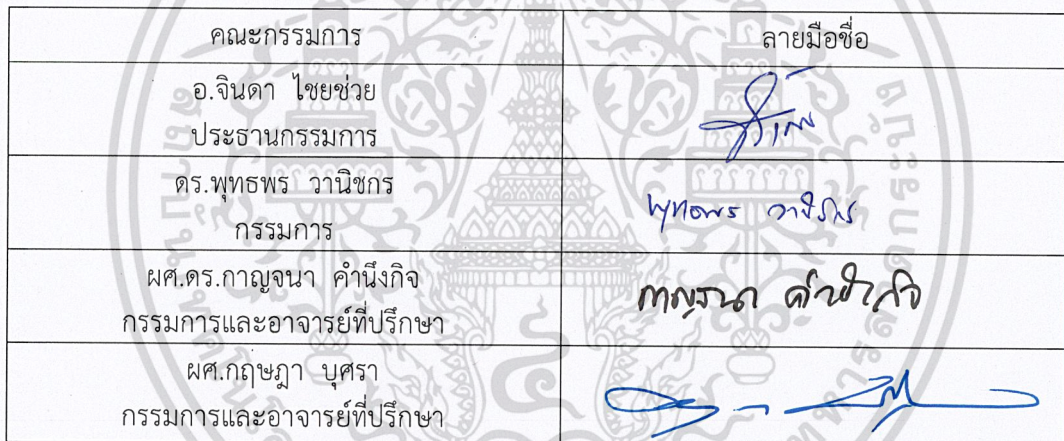 คณะกรรมการ ลายมือชื่อ
อ.จินดา ไชยช่วย
ประธานกรรมการ
ดร.พุทธพร วานิชกร
กรรมการ
พุทธพร วานิชกร
ผศ.ดร.กาญจนา คำนึงกิจ
กรรมการและอาจารย์ที่ปรึกษา
กาญจนา คำนึงกิจ
ผศ.กฤษฎา บุศรา
กรรมการและอาจารย์ที่ปรึกษา